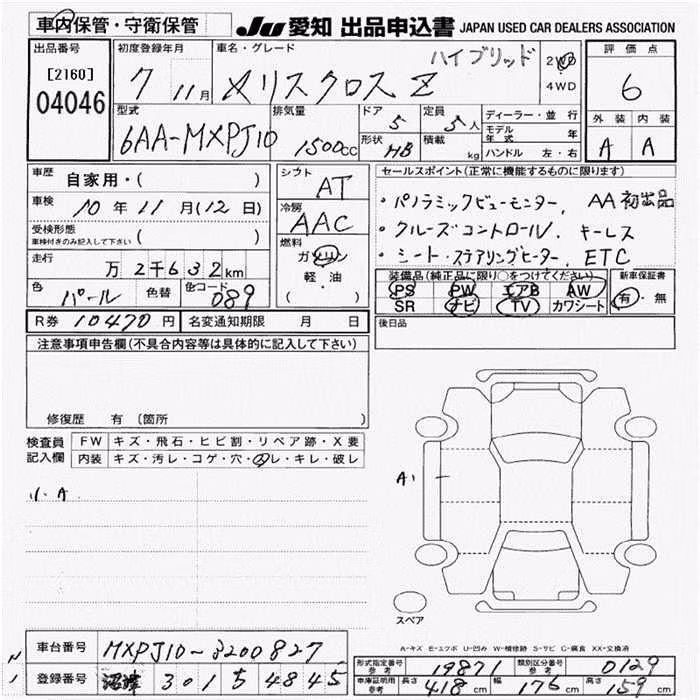 車内保管・守衛保管
JU 愛知 出品申込書 JAPAN USED CAR DEALERS ASSOCIATION
出品番号
[2160]
04046
初度登録年月
7 11月
車名・グレード
ハイブリッド
ヤリスクロス Z
2WD
4WD
評価点
6
型式
6AA-MXPJ10
排気量
1500cc
ドア
5
定員
5人
形状
HB
積載
kg
ディーラー・並行
モデル年式 年
ハンドル 左・右
外装 内装
A A
車歴
自家用・( )
車検
10年11月(12日)
受検形態
車検付きのみ記入して下さい ( )
走行
万2千632km
色
パール
色替
色コード
089
シフト
AT
冷房
AAC
燃料
ガソリン
軽・油
( )
セールスポイント(正常に機能するものに限ります)
・パノラミックビューモニター, AA初出品
・クルーズコントロール, キーレス
・シート・ステアリングヒーター, ETC
装備品(純正品に限り○をつけてください)
PS PW エアB AW
SR ナビ TV カワシート
新車保証書
有・無
R券 10470円
名変通知期限 月 日
後日品
注意事項申告欄(不具合内容等は具体的に記入して下さい)
修復歴 有 (箇所 )
検査員記入欄
FW キズ・飛石・ヒビ割・リペア跡・X要
内装 キズ・汚レ・コゲ・穴・スレ・キレ・破レ
小A
A1
スペア
A-キズ E-エクボ U-凹み W-補修跡 S-サビ C-腐食 XX-交換済
車台番号
MXPJ10-3200827
登録番号
沼津 301 ち 4845
形式指定番号
参考
19871
類別区分番号
参考
0129
車庫証明用
参考
長さ 418cm 幅 176cm 高さ 159cm